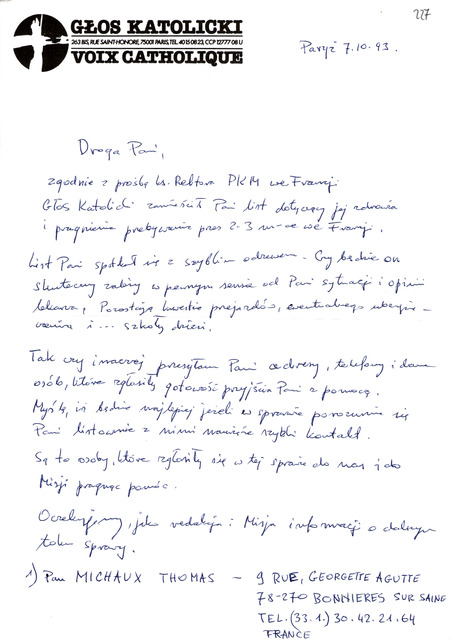 227
GŁOS KATOLICKI
263 BIS, RUE SAINT-HONORE, 75001 PARIS, TEL. 40 15 08 23, CCP 12777 08 U
VOIX CATHOLIQUE
Paryż 7.10.93.
Droga Pani,
zgodnie z prośbą ks. Rektora PKM we Francji
Głos Katolicki zamieścił Pani list dotyczący jej zdrowia
i pragnienia przebywania przez 2-3 m-ce we Francji.
List Pani spotkał się z szybkim odzewem. Czy będzie on
skuteczny zależy w pewnym sensie od Pani sytuacji i opinii
lekarza. Pozostają kwestie przejazdów, ewentualnego ubezpie-
czenia i... szkoły dzieci.
Tak czy inaczej przesyłam Pani adresy, telefony i dane
osób, które zgłosiły gotowość przyjścia Pani z pomocą.
Myślę, iż będzie najlepiej jeżeli w sprawie porozumie się
Pani listownie z nimi nawiąże szybki kontakt.
Są to osoby, które zgłosiły się w tej sprawie do nas i do
Misji pragnąc pomóc.
Oczekujemy, jako redakcja i Misja informacji o dalszym
toku sprawy.
1) Pan MICHAUX THOMAS – 9 RUE, GEORGETTE AGUTTE
78-270 BONNIERES SUR SAINE
TEL. (33.1.) 30.42.21.64
FRANCE